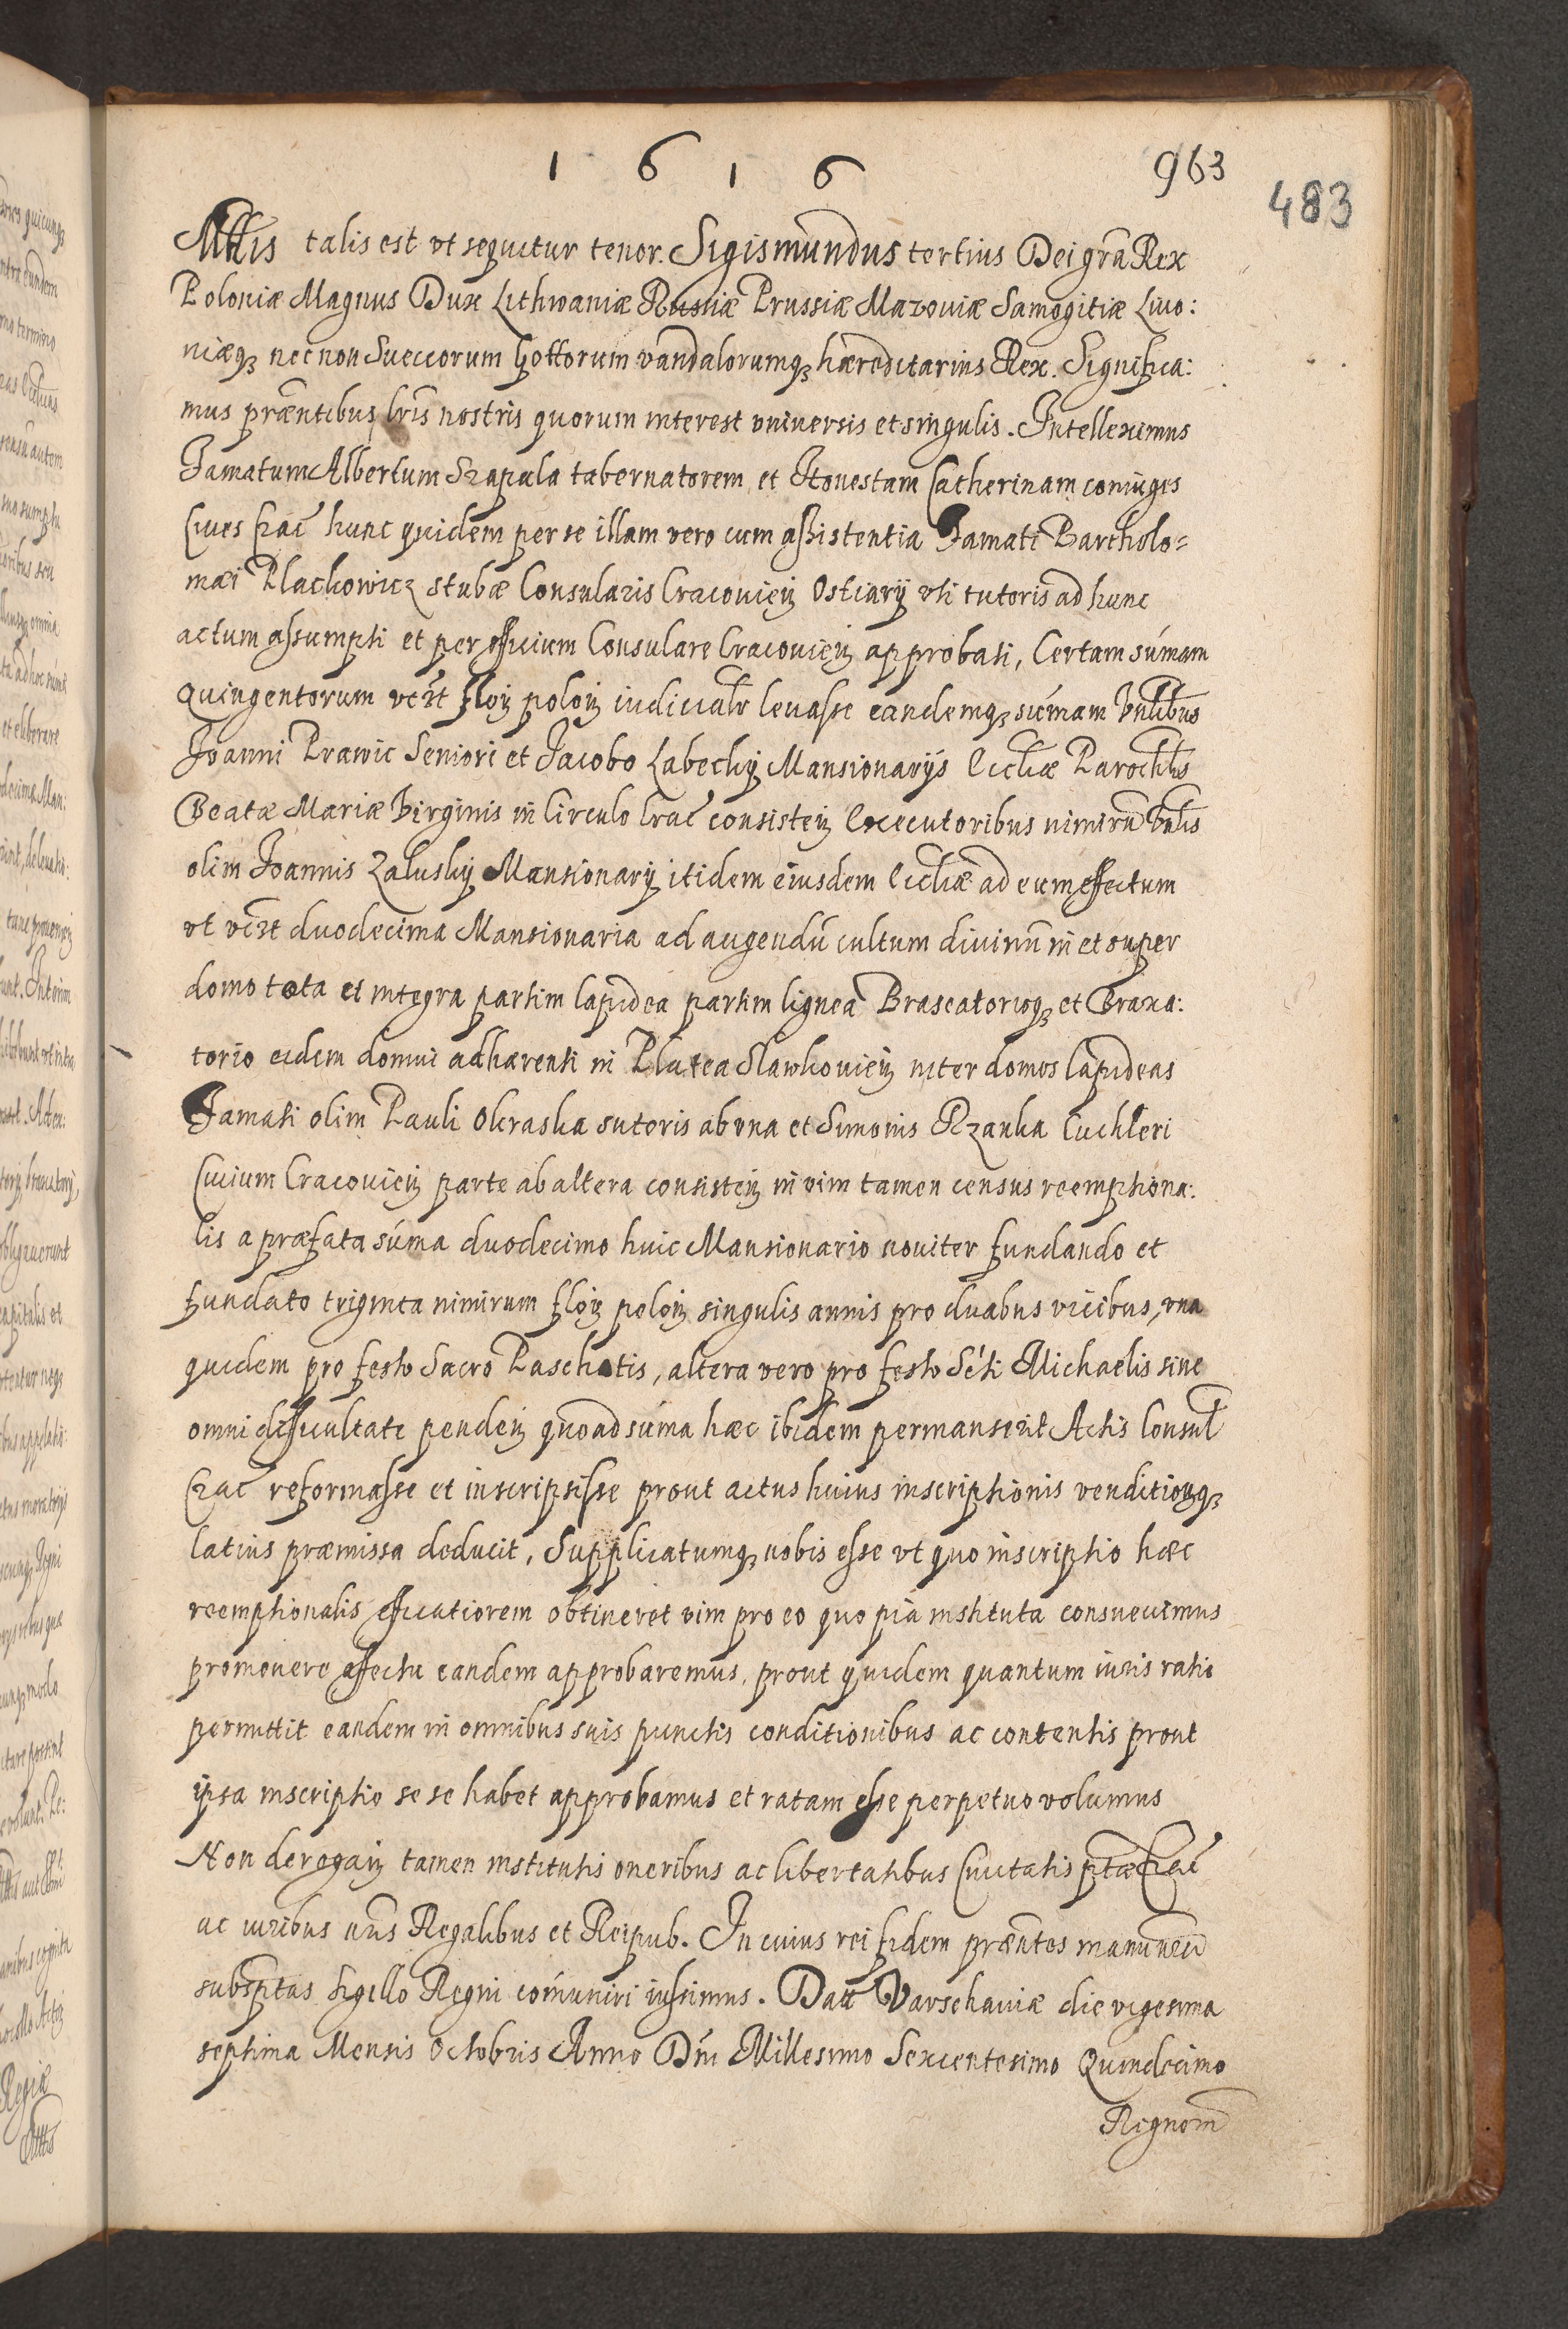 1 6 1 6
963
483
Mttis talis est vt sequitur tenor. Sigismundus tertius Dei grã Rex
Poloniæ Magnus Dux Lithwaniæ Russiæ Prussiæ Mazoviæ Samogitiæ Livo:
niæqꝫ necnon Sueccorum Gottorum vandalorumqꝫ hæreditarius Rex. Significa:
mus præñtibus lris nostris quorum interest vniversis et singulis. Intelleximus
Famatum Albertum Szapala tabernatorem et Honestam Catherinam coniuges
Cives Crac̃ hunc quidem per se illam vero cum assistentia Famati Bartholo=
mæi Plachowicz stubæ Consularis Cracovien̄ Ostiarij vti tutoris ad hunc
actum assumpti et per officium Consulare Cracovien̄ approbati, Certam sum̃am
quingentorum vc̃rt flon̄ polon̄ iudicialr̃ levasse eandemqꝫ sum̃am Vnlibus
Joanni Prawic Seniori et Jacobo Labecky Mansionarijs Ecc̃liæ Parochlis
Beatæ Mariæ Virginis in Circulo Crac̃ consisten̄ Executoribus nimirũ Vnlis
olim Joannis Zalusky Mansionarij itidem eiusdem Ecc̃liæ ad eum effectum
vt vc̃rt duodecima Mansionaria ad augendũ cultum divinũ in et super
domo tota et integra partim lapidea partim lignea Braseatorioqꝫ et Braxa:
torio eidem domui adhærenti in Platea Slawkovien̄ inter domos lapideas
Famati olim Pauli Okraska sutoris ab vna et Simonis Rzanka Cuchleri
Civium Cracovien̄ parte ab altera consisten̄ in vim tamen census reemptiona:
lis a præfata sum̃a duodecimo huic Mansionario noviter fundando et
fundato triginta nimirum flon̄ polon̄ singulis annis pro duabus vicibus, vna
quidem pro festo Sacro Paschatis, altera vero pro festo Sc̃ti Michaelis sine
omni difficultate penden̄ quoad sum̃a hæc ibidem permanserit Actis Consul̃
Crac̃ reformasse et inscripsisse prout actus huius inscriptionis venditionqꝫ
latius præmissa deducit, Supplicatumqꝫ nobis esse vt quo inscriptio hæc
reemptionalis efficatiorem obtineret vim pro eo quo pia instituta consuevimus
promovere affectu eandem approbaremus, prout quidem quantum iuris ratio
permittit eandem in omnibus suis punctis conditionibus ac contentis prout
ipsa inscriptio se se habet approbamus et ratam esse perpetuo volumus
Non derogan̄ tamen institutis oneribus ac libertatibus Civitatis ptæ Crac̃
ac iuribus nr̃is Regalibus et Reipub. In cuius rei fidem præñtes manũ nr̃a
subsp̃tas sigillo Regni com̃uniri iussimus. Datt Varschaviæ die vigesima
septima Mensis Octobris Anno Dñi Millesimo Sexcentesimo Quindecimo
Regnorũ